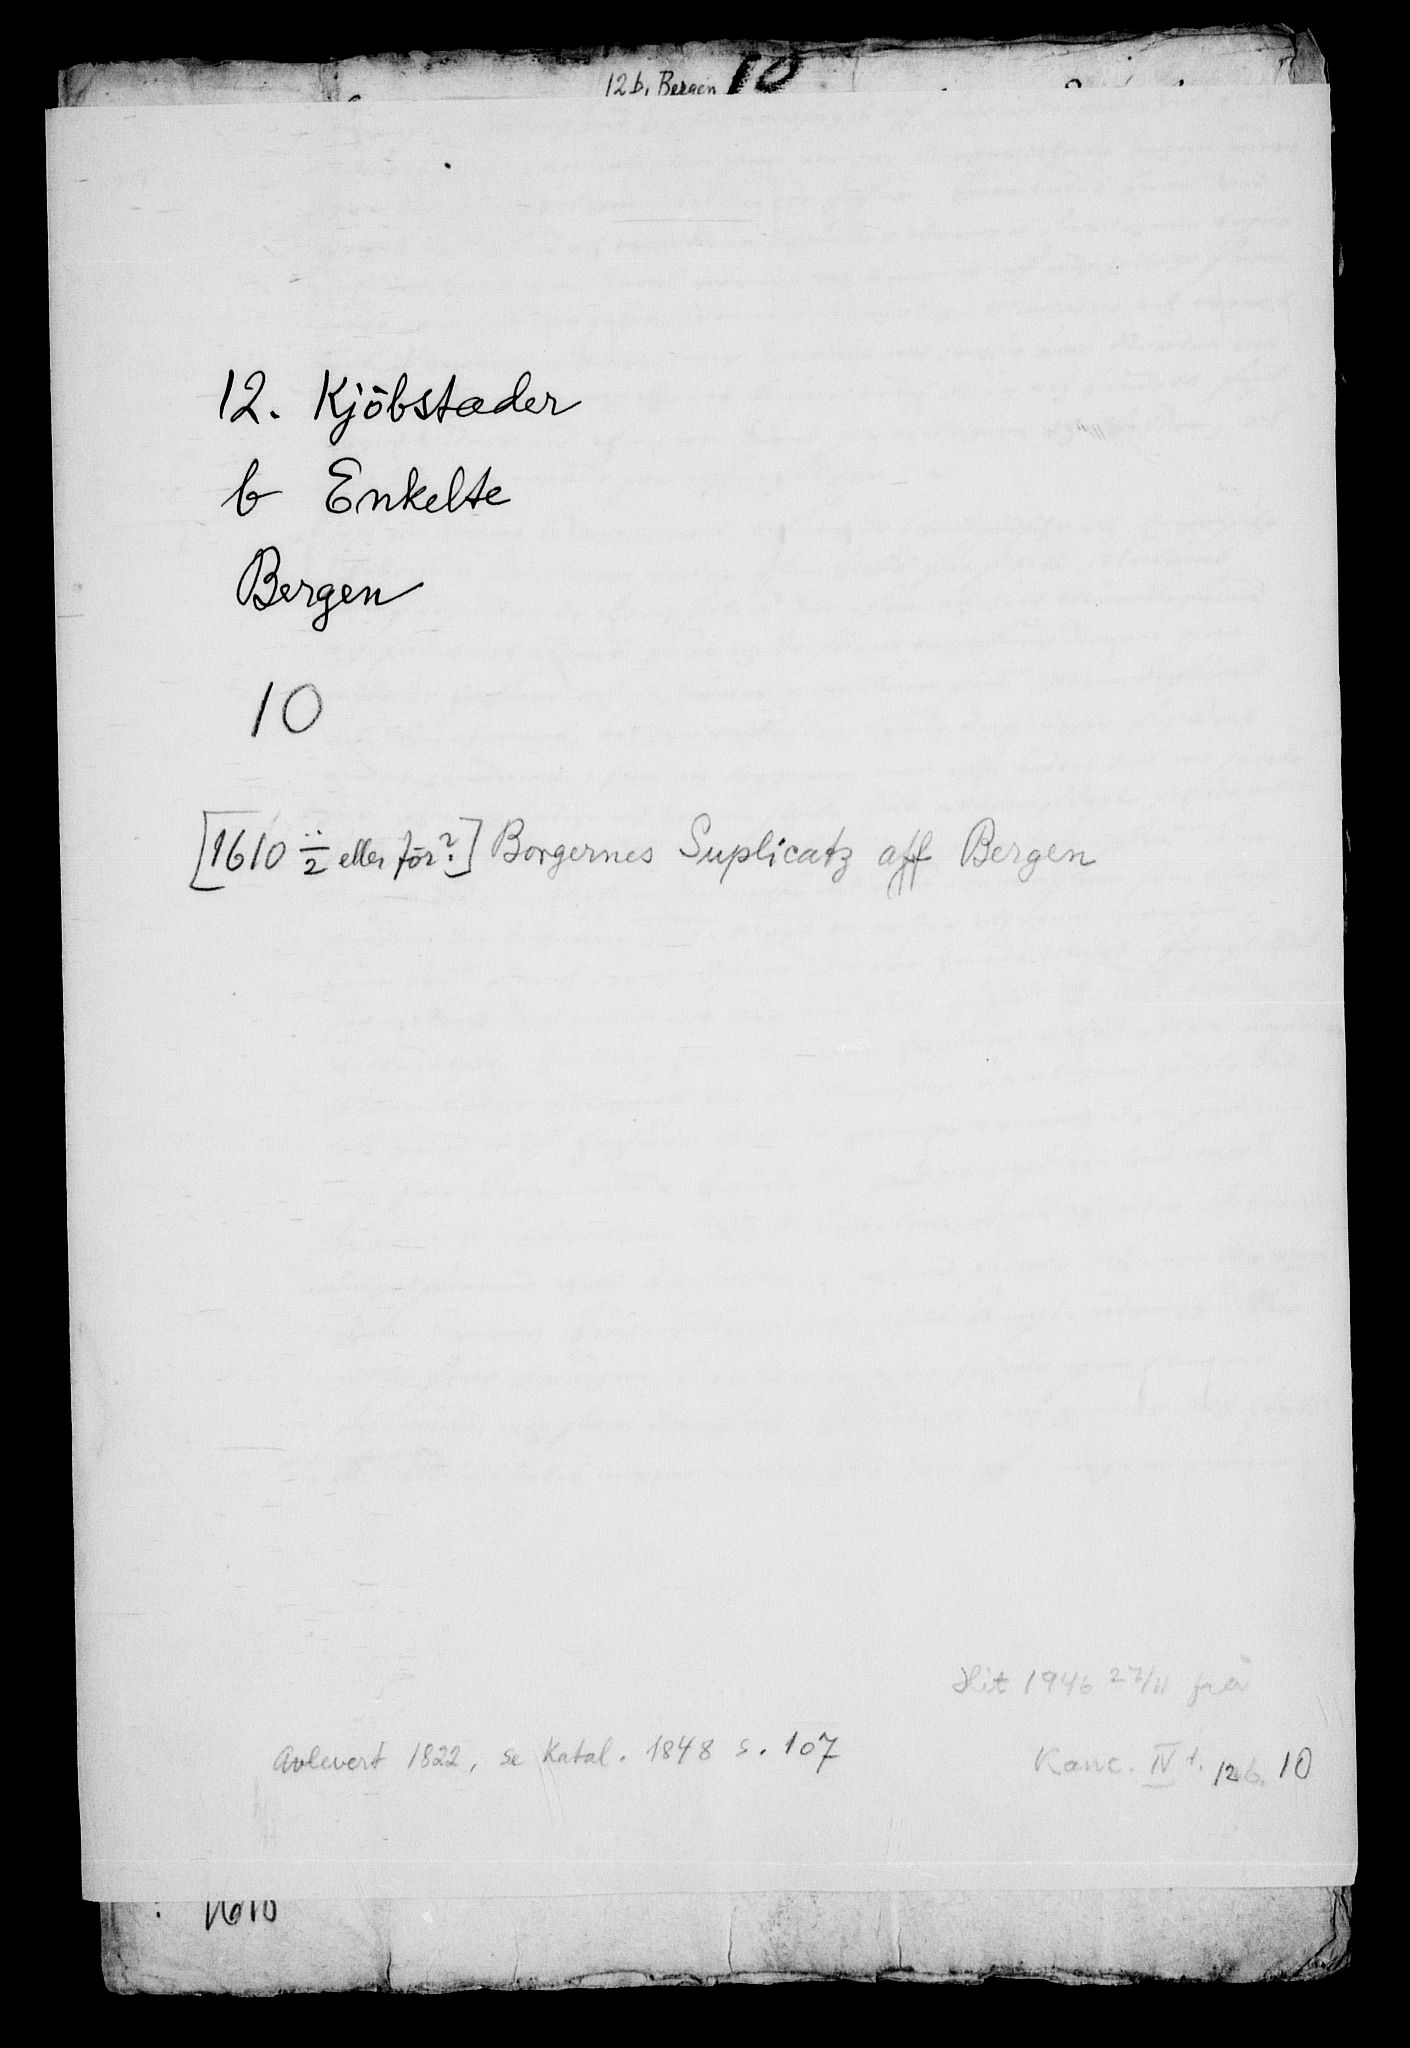 12 b. Bergen 10
12. Kjöbstæder
b Enkelte
Bergen
10
[1610 ¨/2 eller för?] Borgernes Suplicatz aff Bergen
Hit 1946 27/11 frå
Avlevert 1822, se Katal. 1848 s. 107
Kanc. IV 1. 12 b. 10
1610